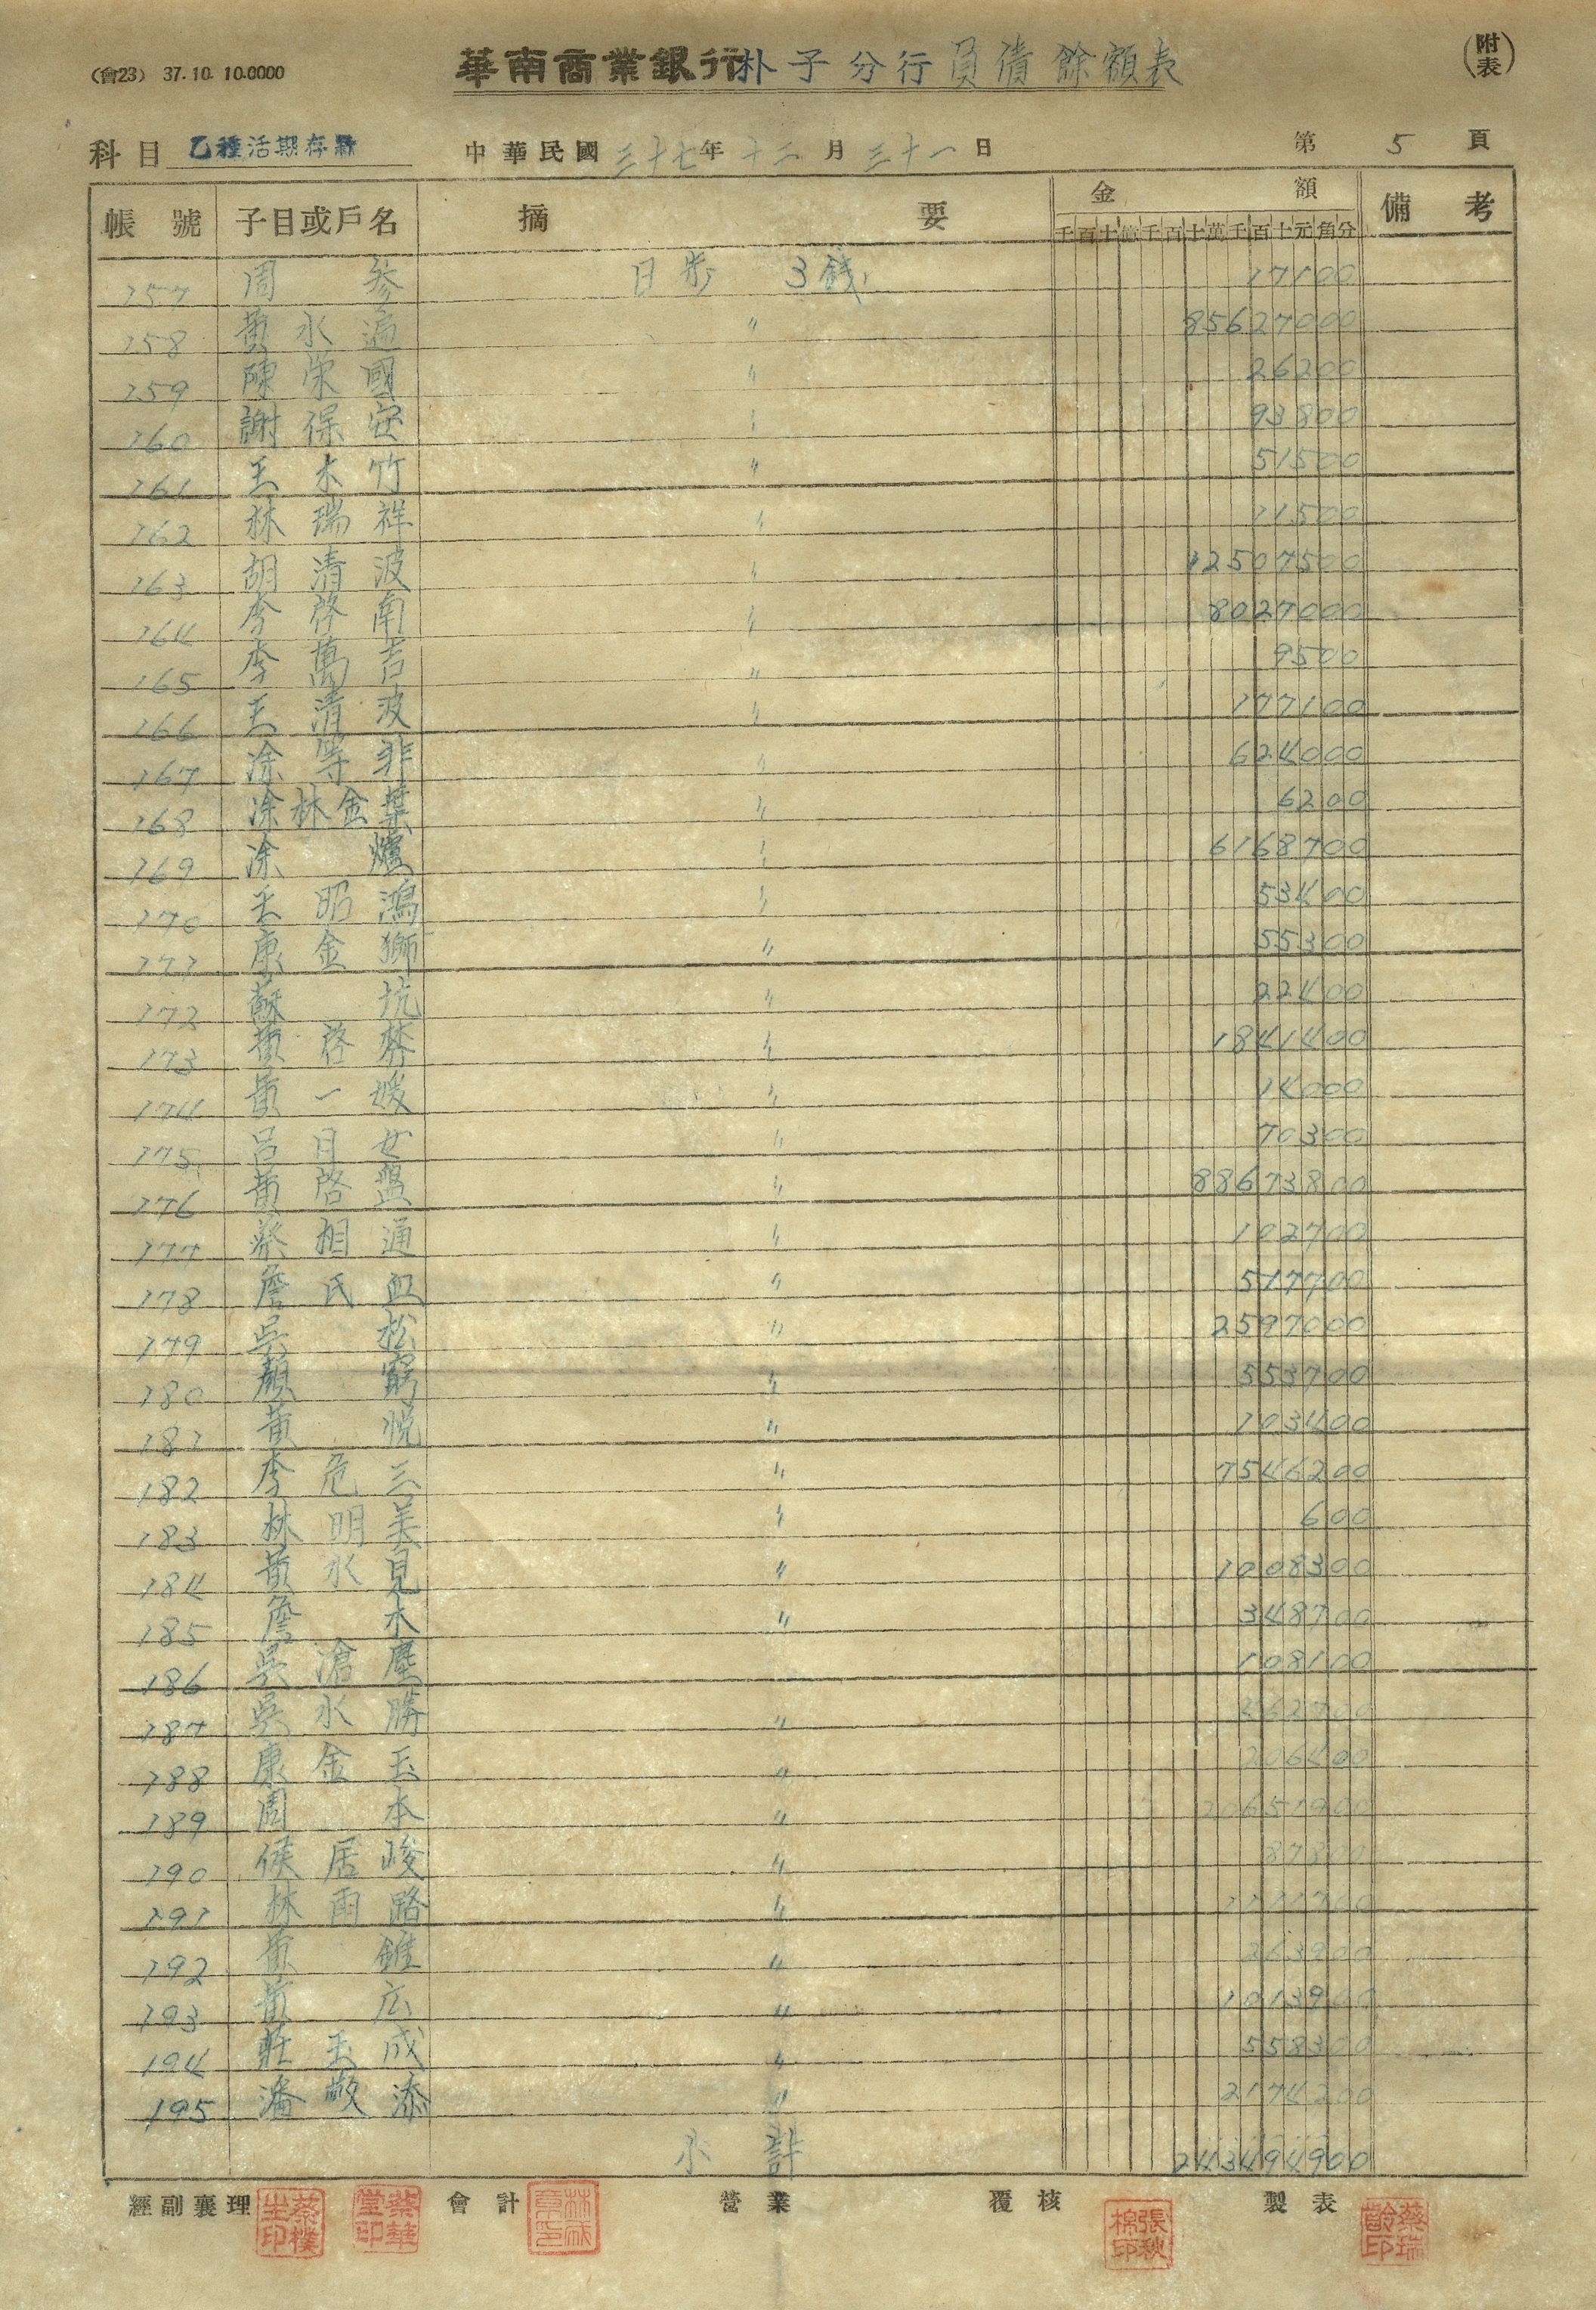 (會23) 37.10.10.0000
華南商業銀行朴子分行負債餘額表
(附表)
科目 乙種活期存款 中華民國三十七年十二月三十一日 第5頁
帳號 子目或戶名 摘要 金額 備考
千百十億千百十萬千百十元角分
157 周參 日步 3錢 17100
158 黃水遍 〃 85627000
159 陳榮國 〃 26200
160 謝保安 〃 93800
161 王木竹 〃 51500
162 林瑞祥 〃 11500
163 胡清波 〃 12507500
164 李啓南 〃 8027000
165 李萬吉 〃 9500
166 王清波 〃 177100
167 涂等非 〃 624000
168 涂林金葉 〃 6200
169 涂爐 〃 6168700
170 王昭鴻 〃 53400
171 康金獅 〃 55300
172 蘇坑 〃 22400
173 黃啓 〃 1841400
174 黃一媛 〃 14000
175 呂日女 〃 70300
176 黃啓盤 〃 88673800
177 蔡相通 〃 102700
178 詹氏血 〃 517700
179 吳松 〃 2597000
180 顏窮 〃 553700
181 黃悅 〃 103400
182 李危三 〃 7546200
183 林明美 〃 600
184 黃水見 〃 1008300
185 詹木 〃 348700
186 吳滄塵 108100
187 吳水勝 〃 362700
188 康金玉 〃 206400
189 周本 〃 20651900
190 侯居峻 〃 87800
191 林雨路 〃 1111700
192 黃錐 〃 263900
193 黃広 〃 1013900
194 莊玉成 〃 558300
195 潘敬添 〃 2174200
小計 243494900
經副襄理 會計 營業 覆核 製表
蔡樸生印 蔡華堂印 張秋棉印 蔡瑞齡印